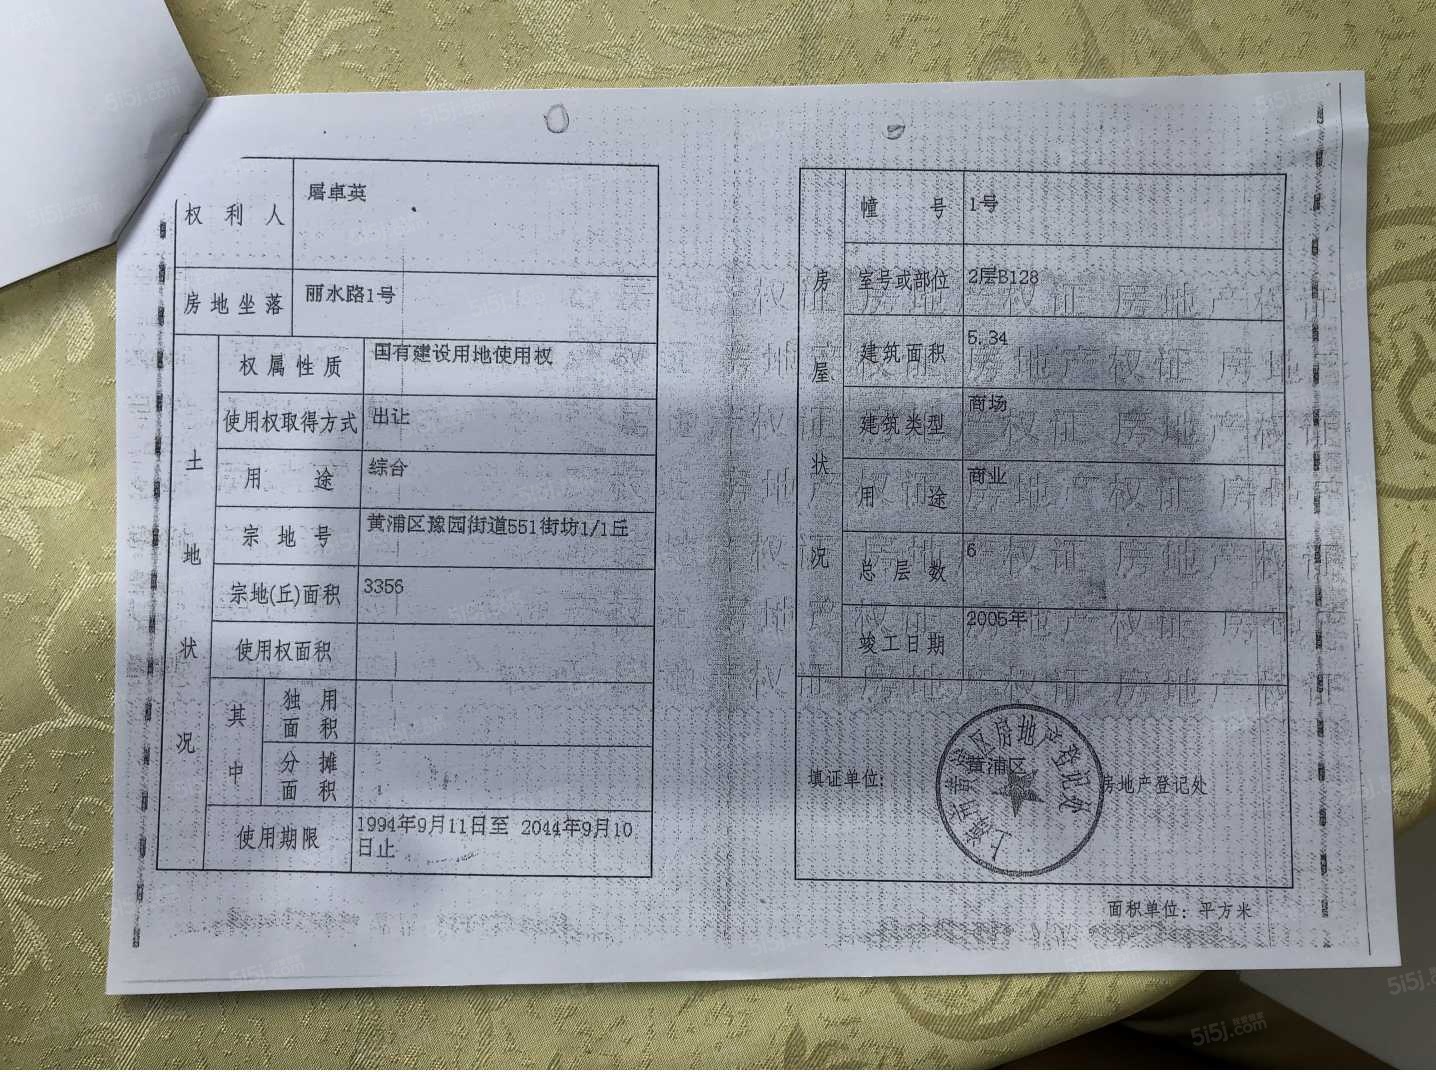 权利人 屠卓英
房地坐落 丽水路1号
土地状况
权属性质 国有建设用地使用权
使用权取得方式 出让
用途 综合
宗地号 黄浦区豫园街道551街坊1/1丘
宗地(丘)面积 3356
使用权面积
其中
独用面积
分摊面积
使用期限 1994年9月11日至 2044年9月10
日止
房屋状况
幢号 1号
室号或部位 2层B128
建筑面积 5.34
建筑类型 商场
用途 商业
总层数 6
竣工日期 2005年
填证单位: 黄浦区 房地产登记处
上海市黄浦区房地产登记处
面积单位: 平方米
房地产权证
5i5j.com